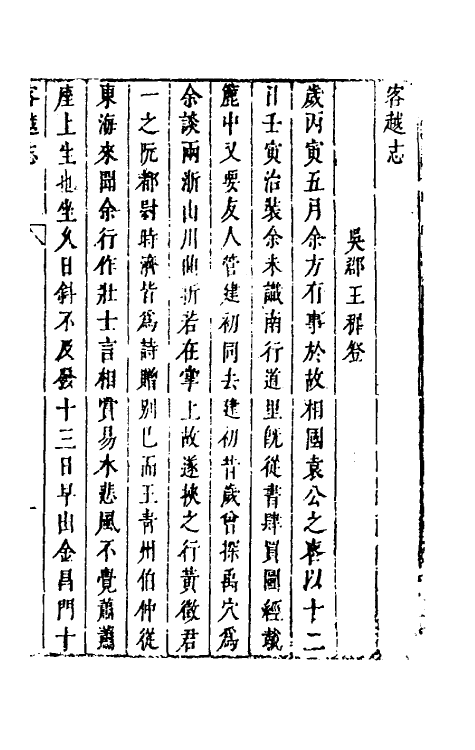 客越志
吳郡王穉登
歲丙寅五月余方有事於故相國袁公之喪以十二
日壬寅治裝余未識南行道里旣從書肆買圖經載
簏中又要友人管建初同去建初昔歲曾探禹穴爲
余談兩浙山川曲折若在掌上故遂挾之行黃徵君
一之阮都尉時濟皆爲詩贈別已而王靑州伯仲從
東海來聞余行作壯士言相賞易水悲風不覺蕭蕭
座上生也坐久日斜不及發十三日早出金昌門十
客越志
一